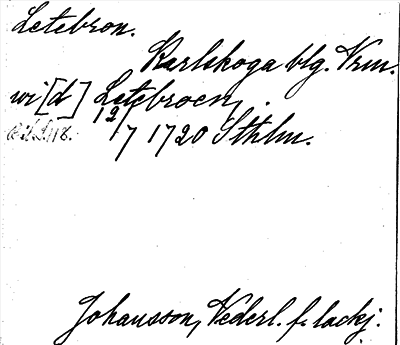 Letebron.
Karlskoga blg. Vrm.
wi[d] Letebroen,.
12/7 1720 Sthlm.
Johansson, Nederl. f. lackj.